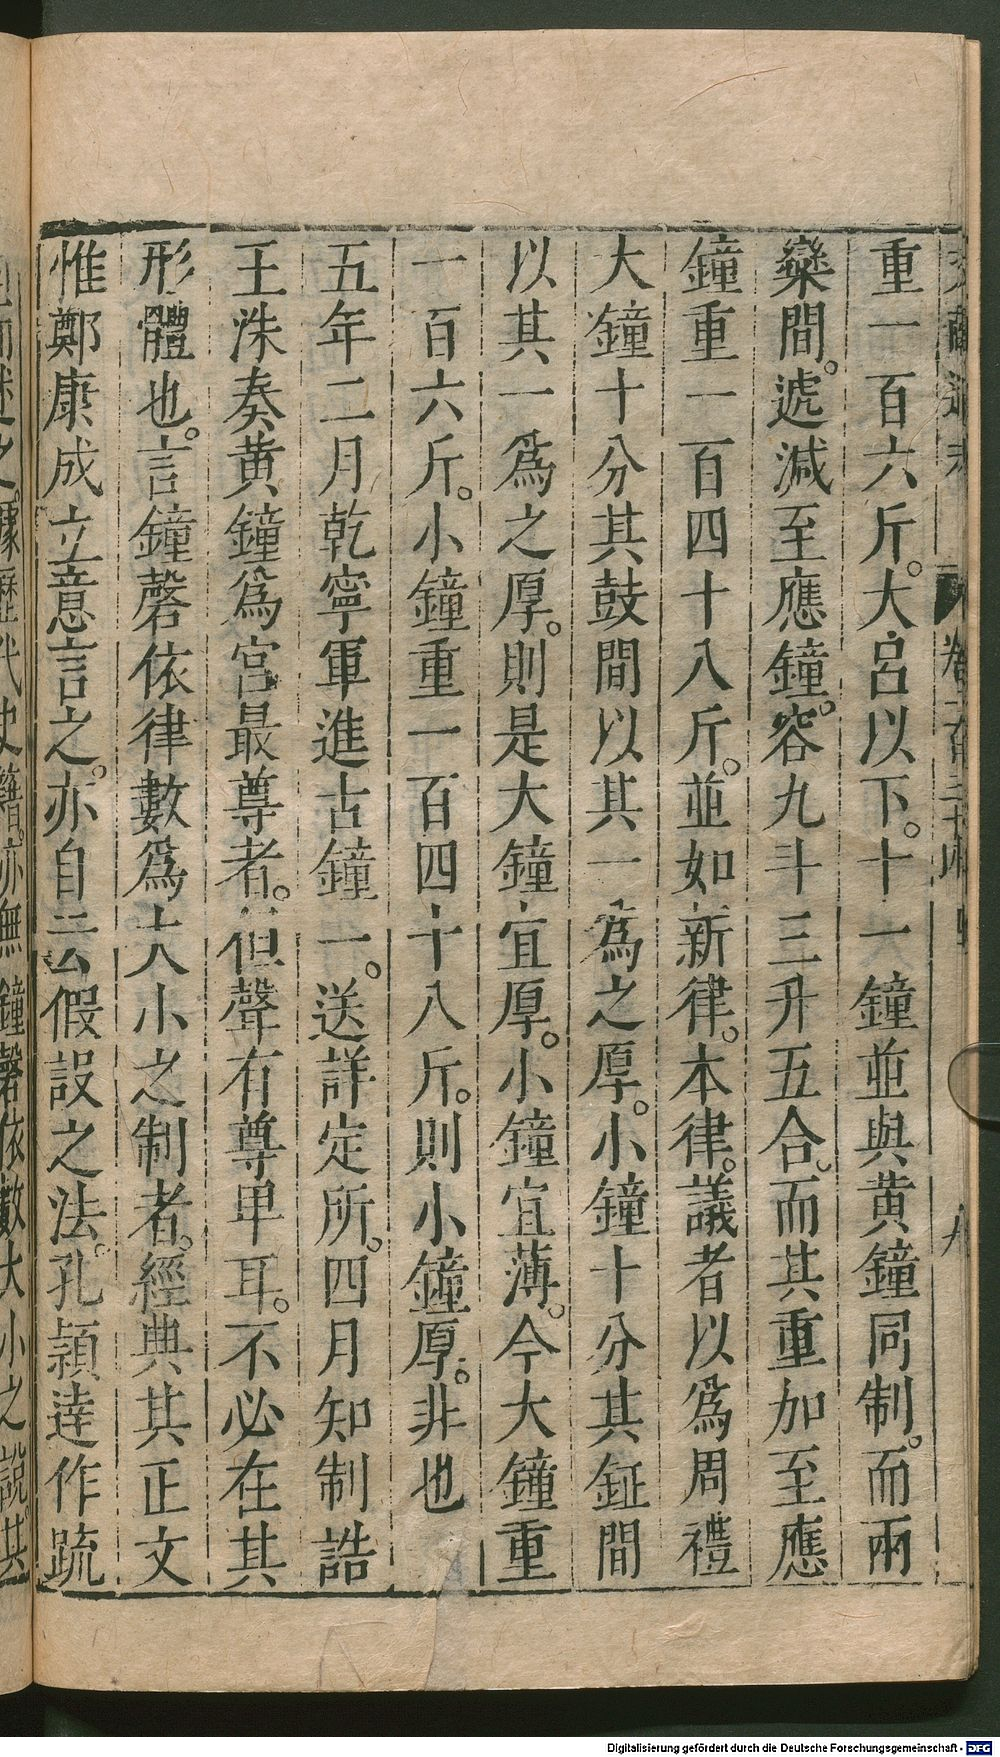 重一百六斤。大呂以下。十一鐘並與黄鐘同制。而兩
欒間。遞減至應鐘。容九斗三升五合。而其重加至應
鐘重一百四十八斤。並如新律。本律。議者以爲周禮
大鐘十分其鼓間以其一爲之厚。小鐘十分其鉦間
以其一爲之厚。則是大鐘宜厚。小鐘宜薄。今大鐘重
一百六斤。小鐘重一百四十八斤。則小鐘厚。非也
五年二月乾寧軍進古鐘一。送詳定所。四月知制誥
王洙奏黄鐘爲宮最尊者。但聲有尊卑耳。不必在其
形體也。言鐘磬依律數爲大小之制者。經典其正文
惟鄭康成立意言之。亦自云假設之法。孔頴達作疏
而述之。據歷代史籍。亦無鐘磬依數大小之說。其
Digitalisierung gefördert durch die Deutsche Forschungsgemeinschaft - DFG